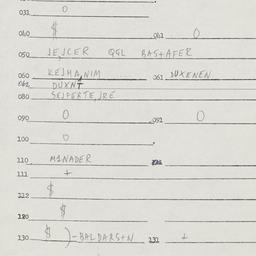 031 0
040 $ 041 0
050 JEJCER QGL BASTAFER
060 KEJHA,NIM 061 JUXENEN
062 DUXNT
080 SEJFERTE,JRÉ
090 0 091 0
100 0
110 M1NADER
111 +
112 $
120 $
130 $ )-BALDARS+N 131 +